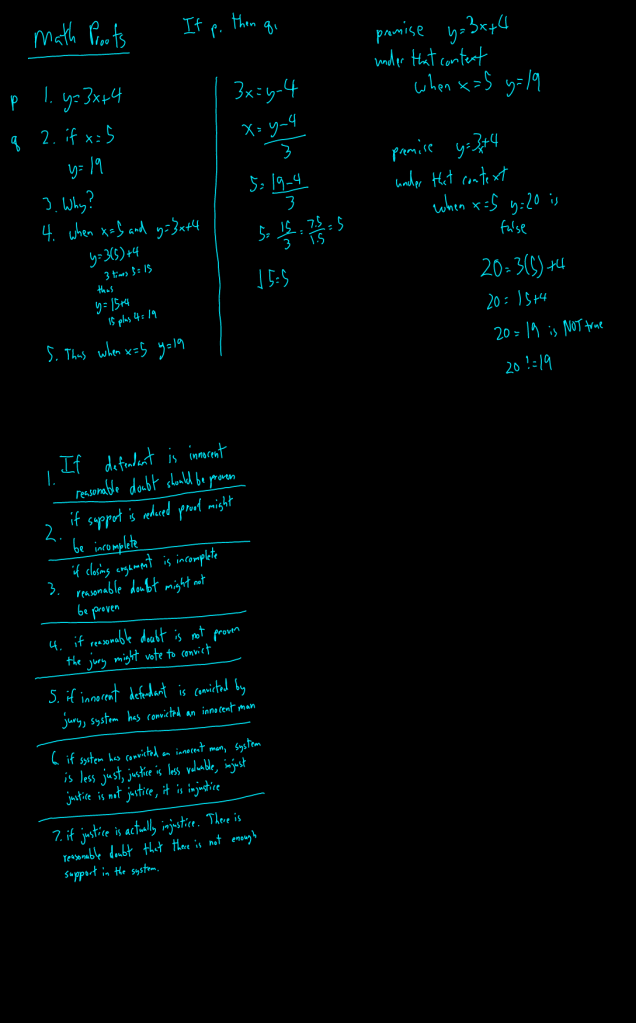 Math Proofs
If p. then q.
p 1. y=3x+4
q 2. if x=5
y=19
3. Why?
4. when x=5 and y=3x+4
y=3(5)+4
3 times 5=15
thus
y=15+4
15 plus 4=19
5. Thus when x=5 y=19
3x=y-4
x=y-4
3
5=19-4
3
5=15/3=7.5/1.5=5
5=5
premise y=3x+4
under that context
when x=5 y=19
premise y=3x+4
under that context
when x=5 y=20 is
false
20=3(5)+4
20=15+4
20=19 is NOT true
20!=19
1. If defendant is innocent
reasonable doubt should be proven
2. if support is reduced proof might
be incomplete
if closing argument is incomplete
3. reasonable doubt might not
be proven
4. if reasonable doubt is not proven
the jury might vote to convict
5. if innocent defendant is convicted by
jury, system has convicted an innocent man
6 if system has convicted an innocent man, system
is less just, justice is less valuable, injust
justice is not justice, it is injustice
7. if justice is actually injustice. There is
reasonable doubt that there is not enough
support in the system.